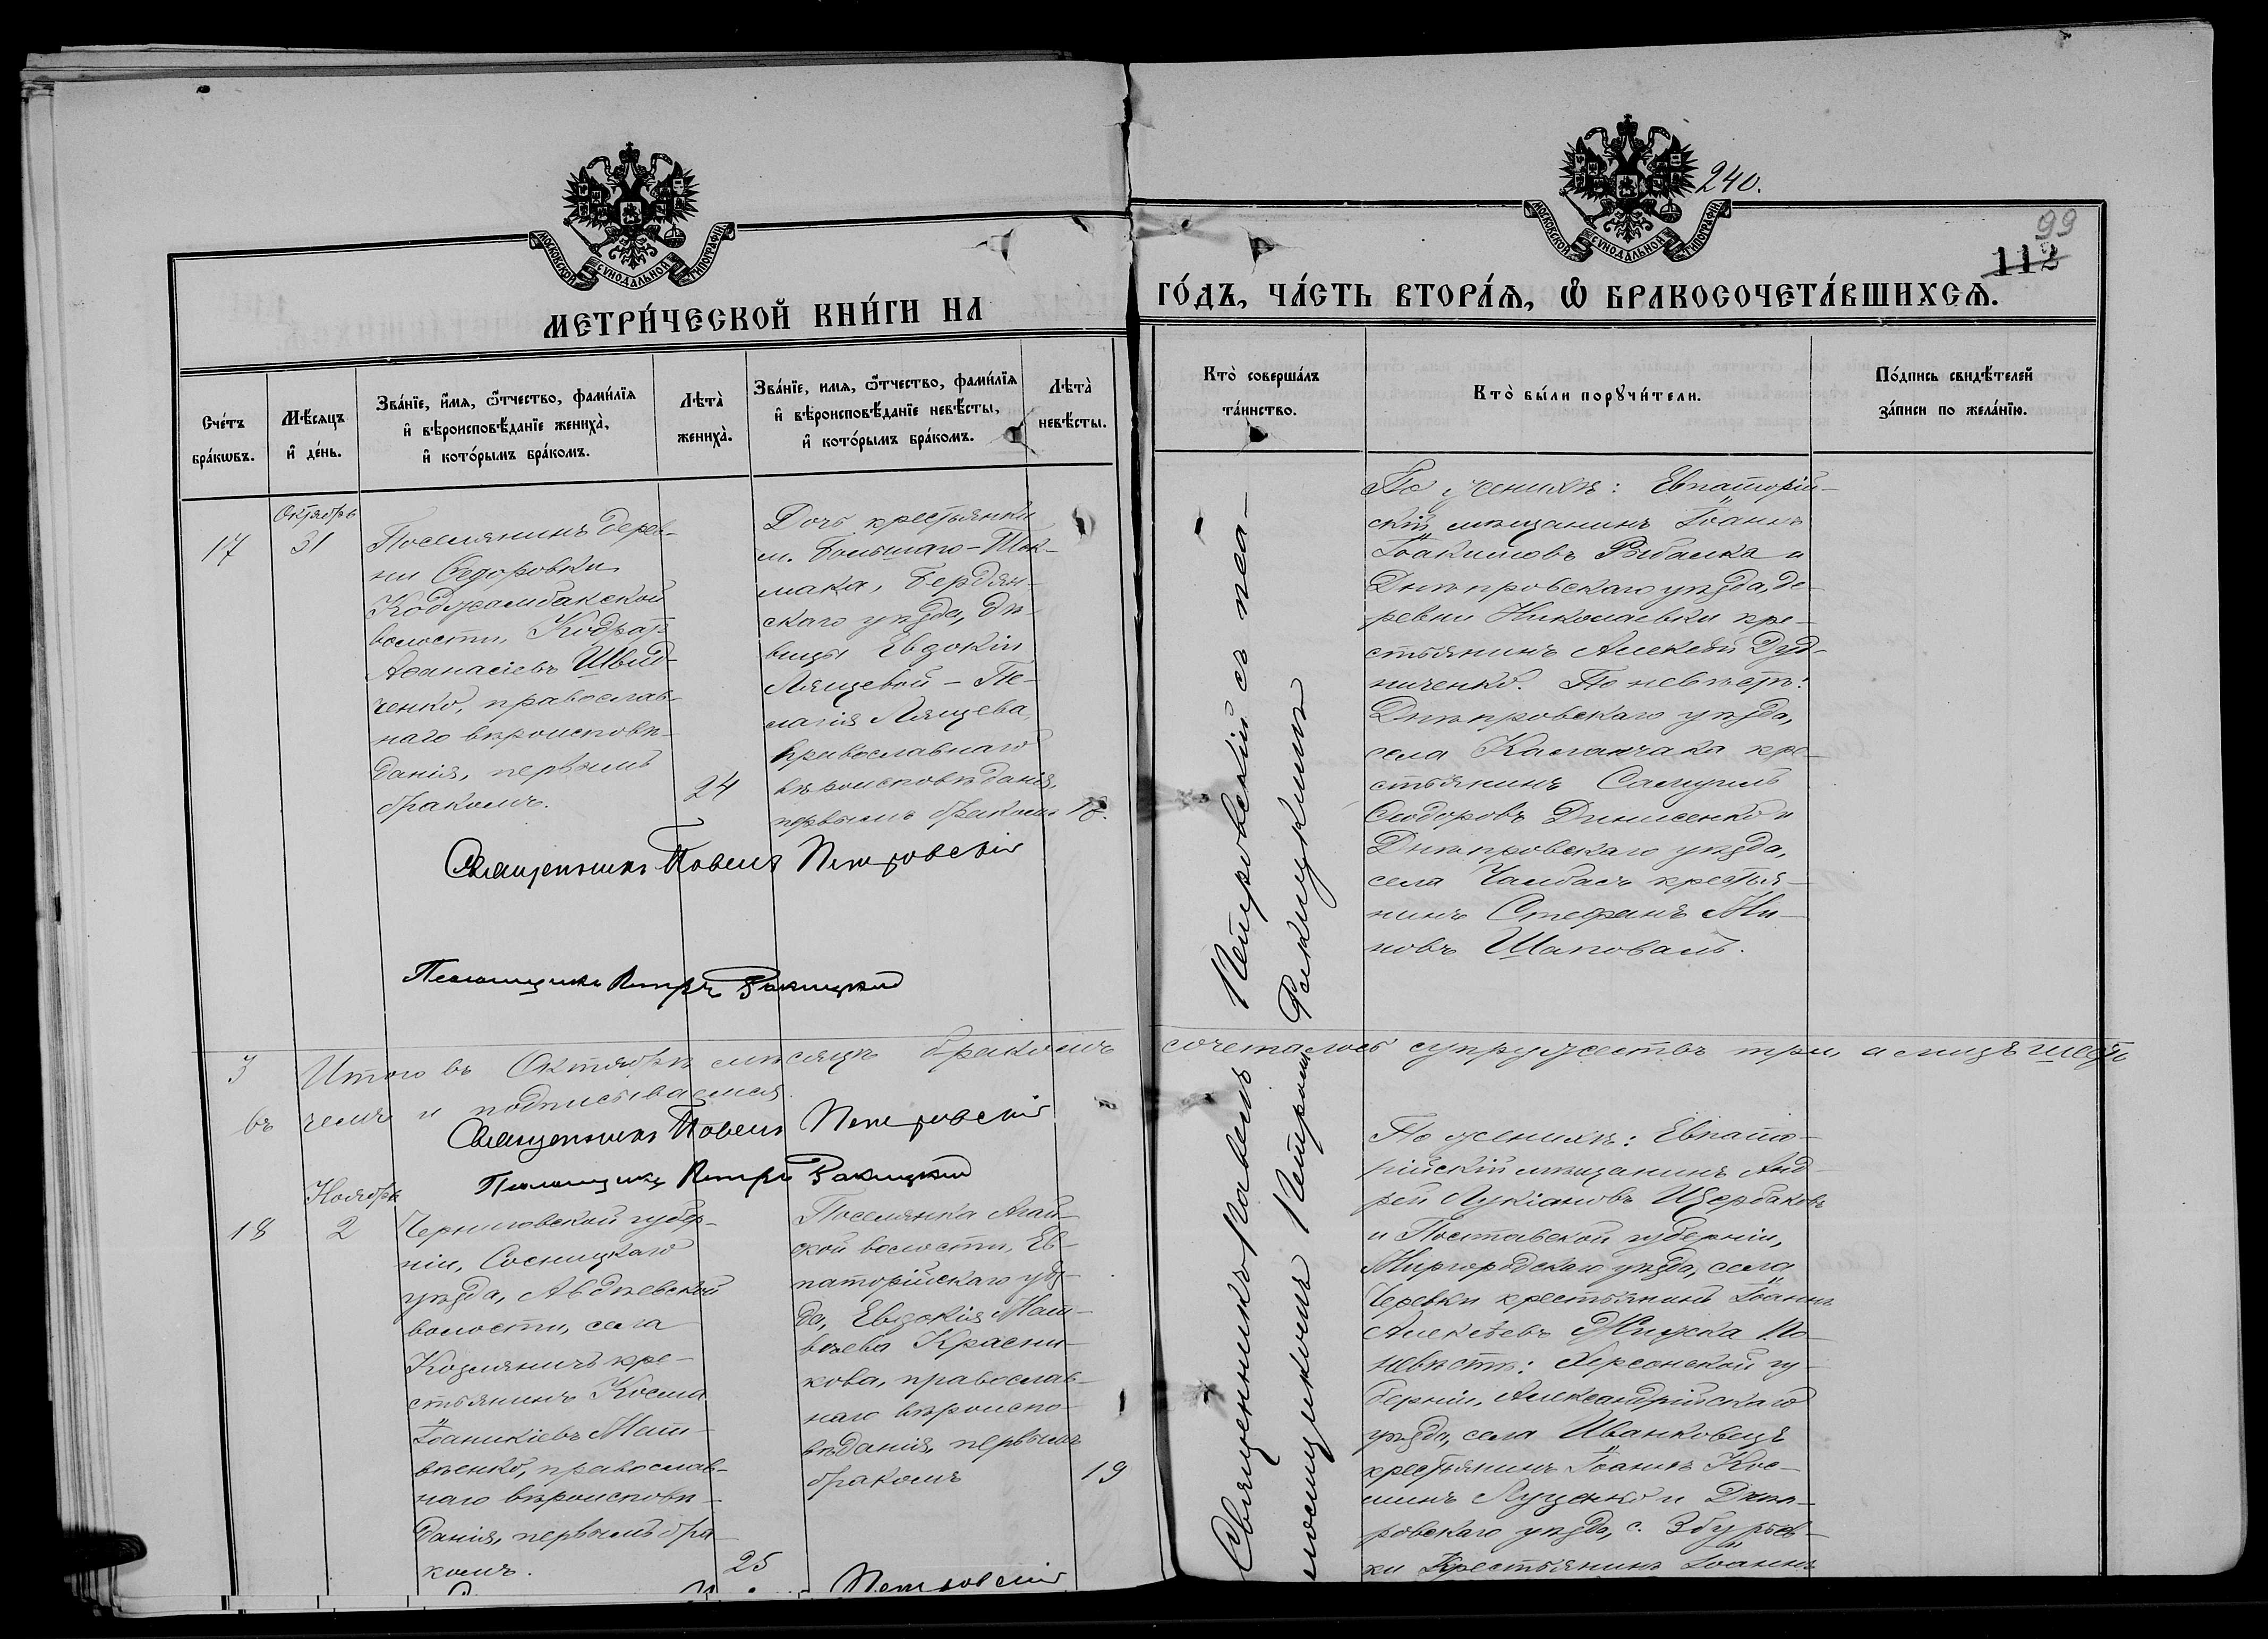 240.
99
112
МОСКОВСКОЙ СѴНОДАЛЬНОЙ ТИПОГРАФІИ
МОСКОВСКОЙ СѴНОДАЛЬНОЙ ТИПОГРАФІИ
МЕТРИ́ЧЕСКОЙ КНИ́ГИ НА
ГО́ДЪ, ЧА́СТЬ ВТОРА́Ѧ, Ѽ БРАКОСОЧЕТА́ВШИХСѦ.
Сче́тъ
бра́кѡвъ.
Мѣ́сѧцъ
и҆ де́нь.
Зва́нїе, и҆́мѧ, ѻ҆́тчество, фами́лїѧ
и҆ вѣроисповѣ́данїе жениха̀,
и҆ кото́рымъ бра́комъ.
Лѣта̀
жениха̀.
Зва́нїе, имѧ, ѻ҆́тчество, фами́лїѧ
и҆ вѣроисповѣ́данїе невѣ́сты,
и҆ кото́рымъ бра́комъ.
Лѣта̀
невѣ́сты.
Кто̀ соверша́лъ
та́инство.
Кто̀ бы́ли порꙋчи́тели.
По́дпись свидѣ́телей
за́писи по жела́нїю.
17
Октябрь
31
Поселянинъ дерев-
ни Ѳедоровки
Коджамбакской
волости, Кодратъ
Аѳанасіевъ Швид-
ченко, православ-
наго вѣроисповѣ-
данія, первымъ
бракомъ.
24
Дочь крестьянки
м. Большаго-Ток-
мака, Бердян-
скаго уѣзда, дѣ-
вицы Евдокіи
Лящевой - Пе-
лагія Лящева,
православнаго
вѣроисповѣданія,
первымъ бракомъ
18.
Священникъ Павелъ Петровскій
Псаломщикъ Петръ Ракицкій
По женихѣ: Евпаторій-
скій мѣщанинъ Іоаннъ
Іоакимовъ Рыбалка и
Днѣпровскаго уѣзда, де-
ревни Николаевки кре-
стьянинъ Алексѣй Дуд-
ниченко. По невѣстѣ:
Днѣпровскаго уѣзда,
села Каланчака кре-
стьянинъ Самуилъ
Сидоровъ Денисенко и
Днѣпровскаго уѣзда,
села Чалбасъ крестья-
нинъ Стефанъ Ми-
новъ Шаповалъ.
Священникъ Павелъ Петровскій съ пса-
ломщикомъ Петромъ Ракицкимъ
3 Итого въ Октябрѣ мѣсяцѣ бракомъ сочеталось супружествъ три, а лицъ шесть
въ чемъ и подписываемся
Священникъ Павелъ Петровскій
Псаломщикъ Петръ Ракицкій
18
Ноябрь
2
Черниговской губер-
ніи, Сосницкаго
уѣзда, Авдѣевской
волости, села
Козляничъ кре-
стьянинъ Косма
Іоанникіевъ Мат-
вѣенко, православ-
наго вѣроисповѣ-
данія, первымъ бра-
комъ.
25
Поселянка Агай-
ской волости, Ев-
паторійскаго уѣз-
да, Евдокія Мат-
вѣева Красни-
кова, православ-
наго вѣроиспо-
вѣданія, первымъ
бракомъ
19
По женихѣ: Евпато-
рійскій мѣщанинъ Анд-
рей Лукіановъ Щербаковъ
и Полтавской губерніи,
Миргородскаго уѣзда, села
Черевки крестьянинъ Іоаннъ
Алексѣевъ Жижка По
невѣстѣ: Херсонской гу-
берніи, Александрійскаго
уѣзда, села Иванковецъ
крестьянинъ Іоаннъ Кос-
минъ Луценко и Днѣп-
ровскаго уѣзда, с. Збурьев-
ки крестьянинъ Іоаннъ
Петровскій